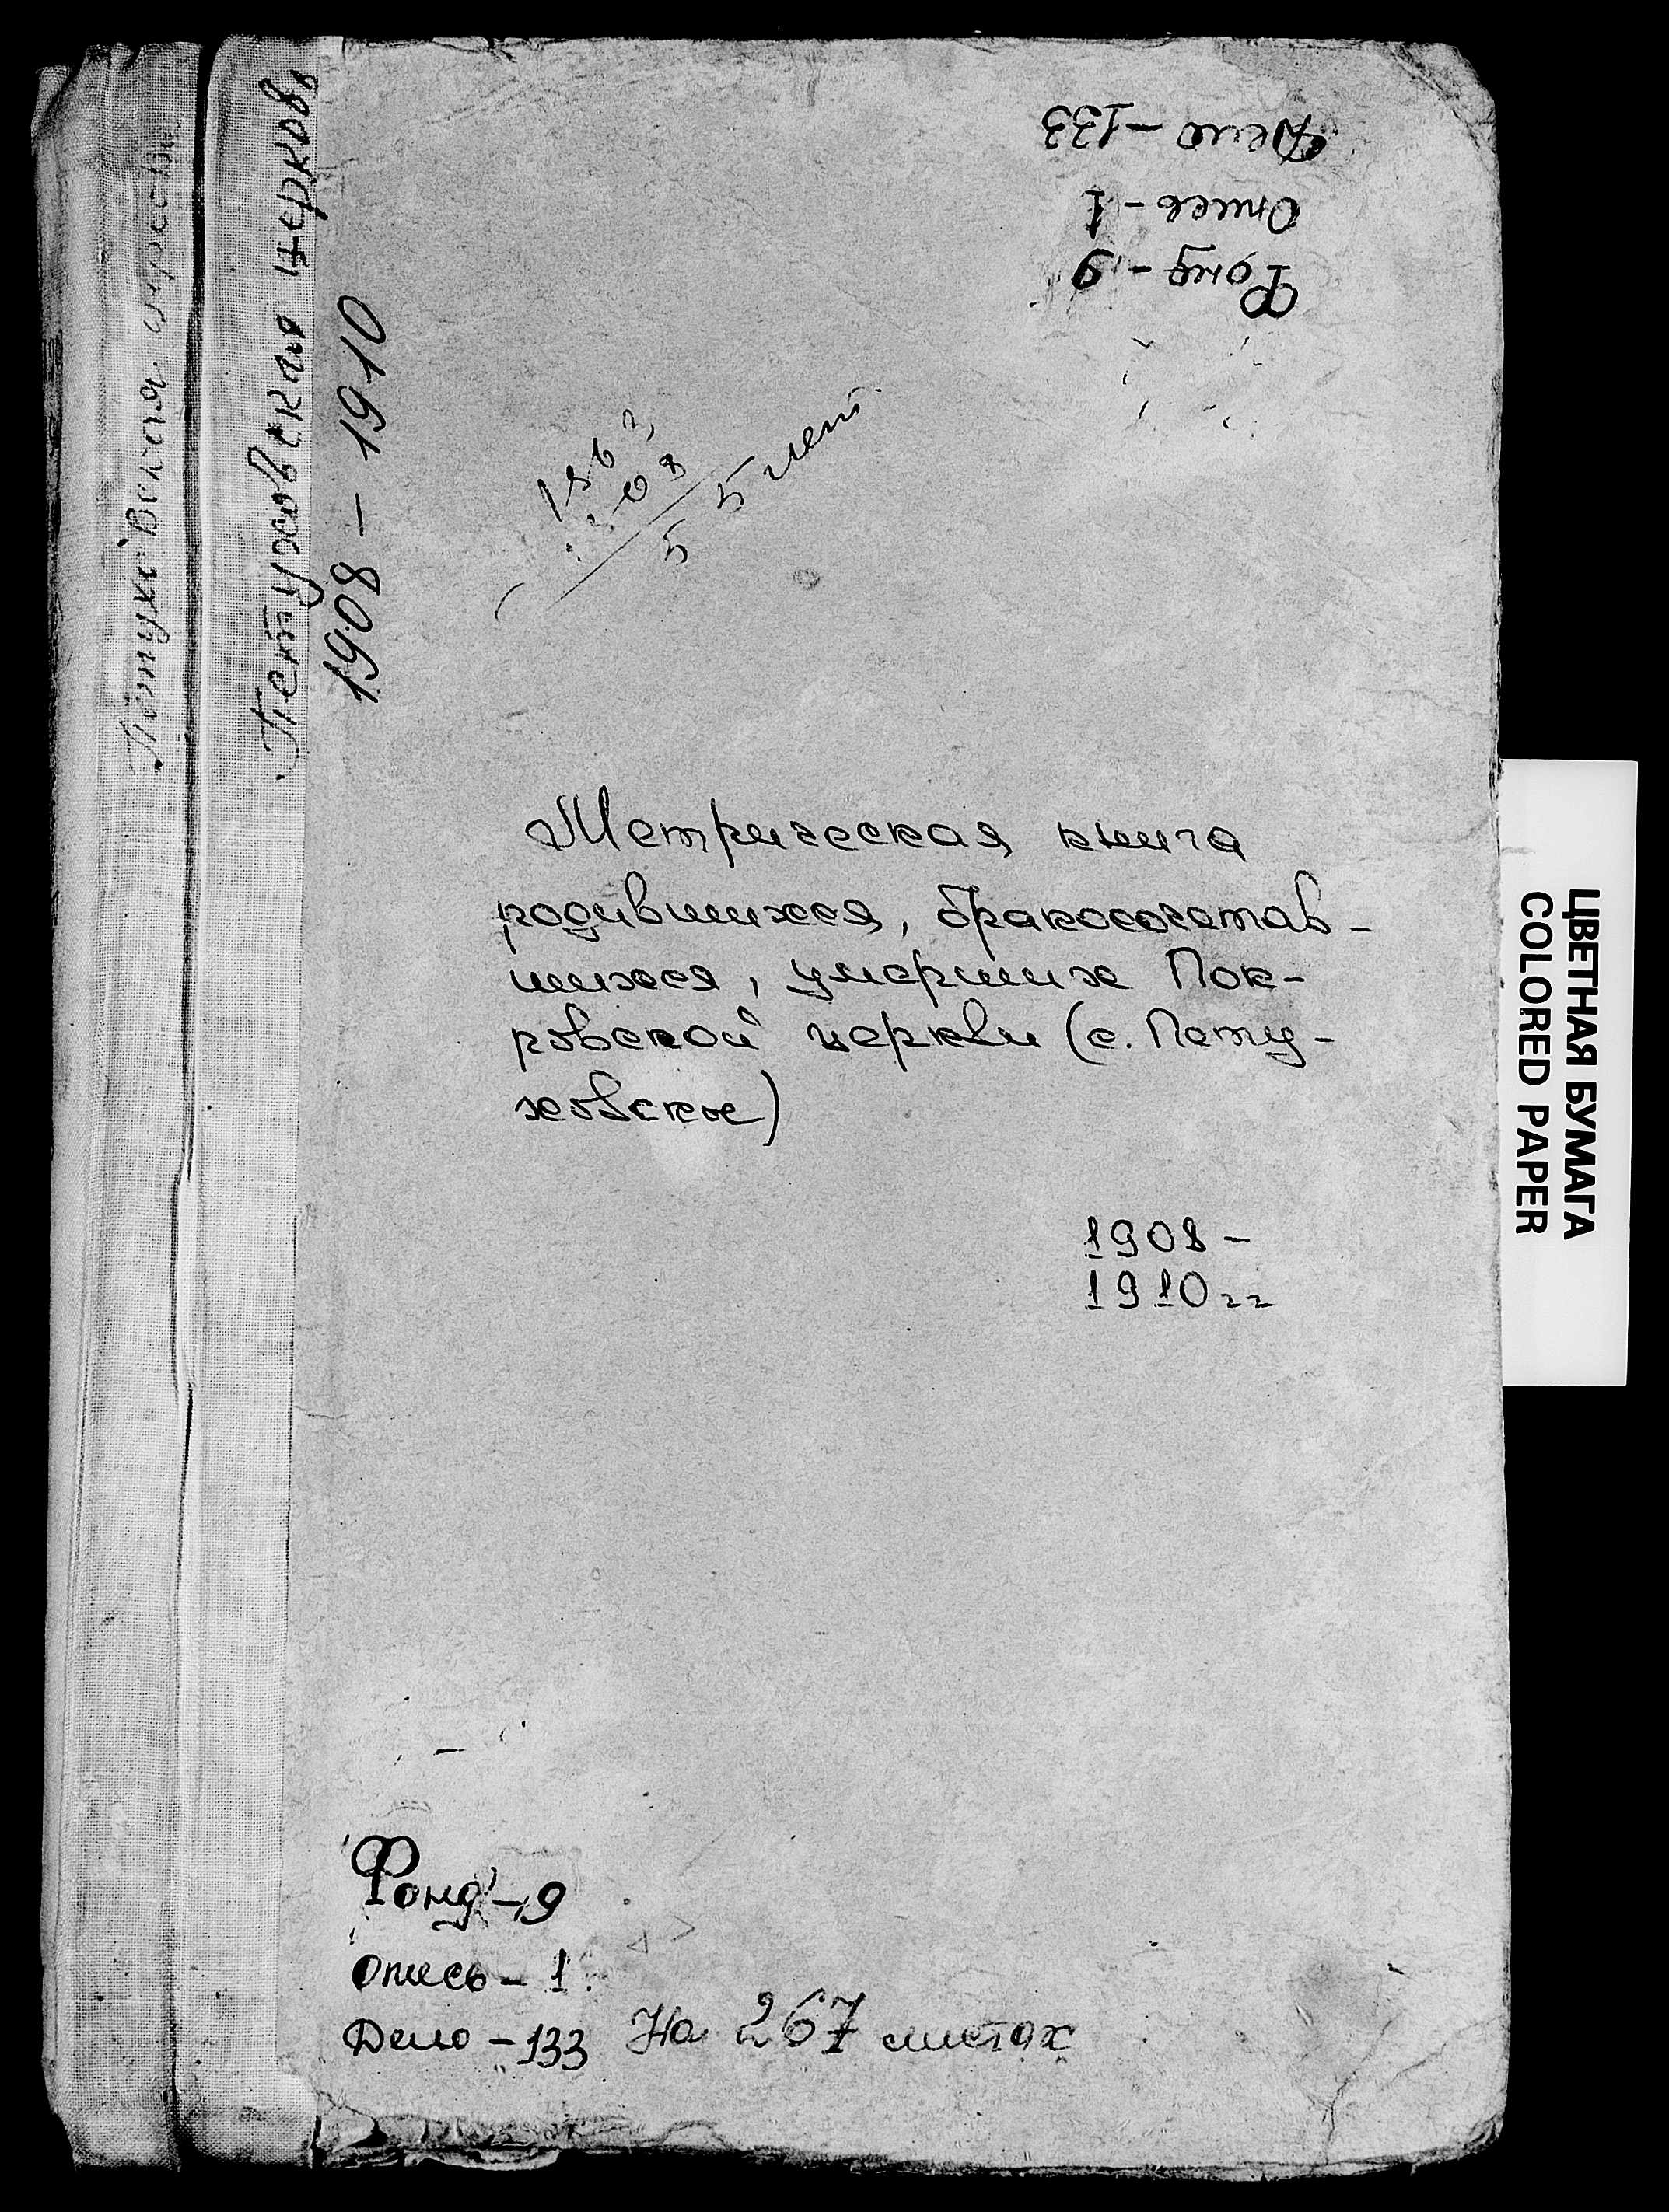 Дело - 133
Опись - 1
Фонд - 9
Петуховская церковь
1908 - 1910
5 5 лет
Метрическая книга
родившихся, бракосочетав-
шихся, умерших Пок-
ровской церкви (с. Пету-
ховское)
1908 -
1910 гг
ЦВЕТНАЯ БУМАГА
COLORED PAPER
Фонд - 9
Опись - 1
Дело - 133 На 267 листах